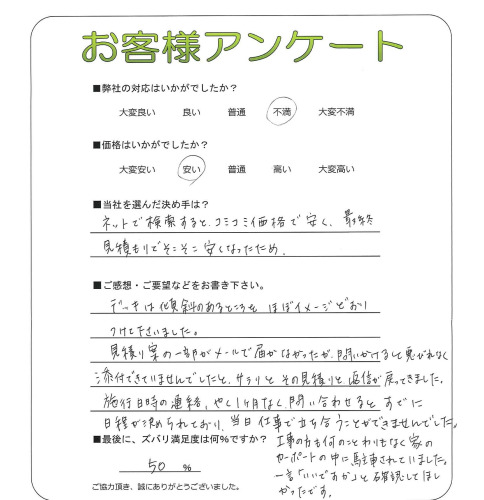 お客様アンケート
■弊社の対応はいかがでしたか？
大変良い 良い 普通 不満 大変不満
■価格はいかがでしたか？
大変安い 安い 普通 高い 大変高い
■当社を選んだ決め手は？
ネットで検索すると、コミコミ価格で安く、最終
見積もりでそこそこ安くなったため。
■ご感想・ご要望などをお書き下さい。
デッキは傾斜のあるところもほぼイメージどおり
つけて下さいました。
見積り案の一部がメールで届かなかったが、問いかけると悪びれなく
添付できていませんでしたと、サラリとその見積りと返信が戻ってきました。
施行日時の連絡、やく1ヶ月なく、問い合わせると、すでに
日程が決められており、当日仕事で立ち合うことができませんでした。
工事の方も何のことわりもなく家の
カーポートの中に駐車されていました。
一言「いいですか」と確認してほし
かったです。
■最後に、ズバリ満足度は何％ですか？
50 ％
ご協力頂き、誠にありがとうございました。